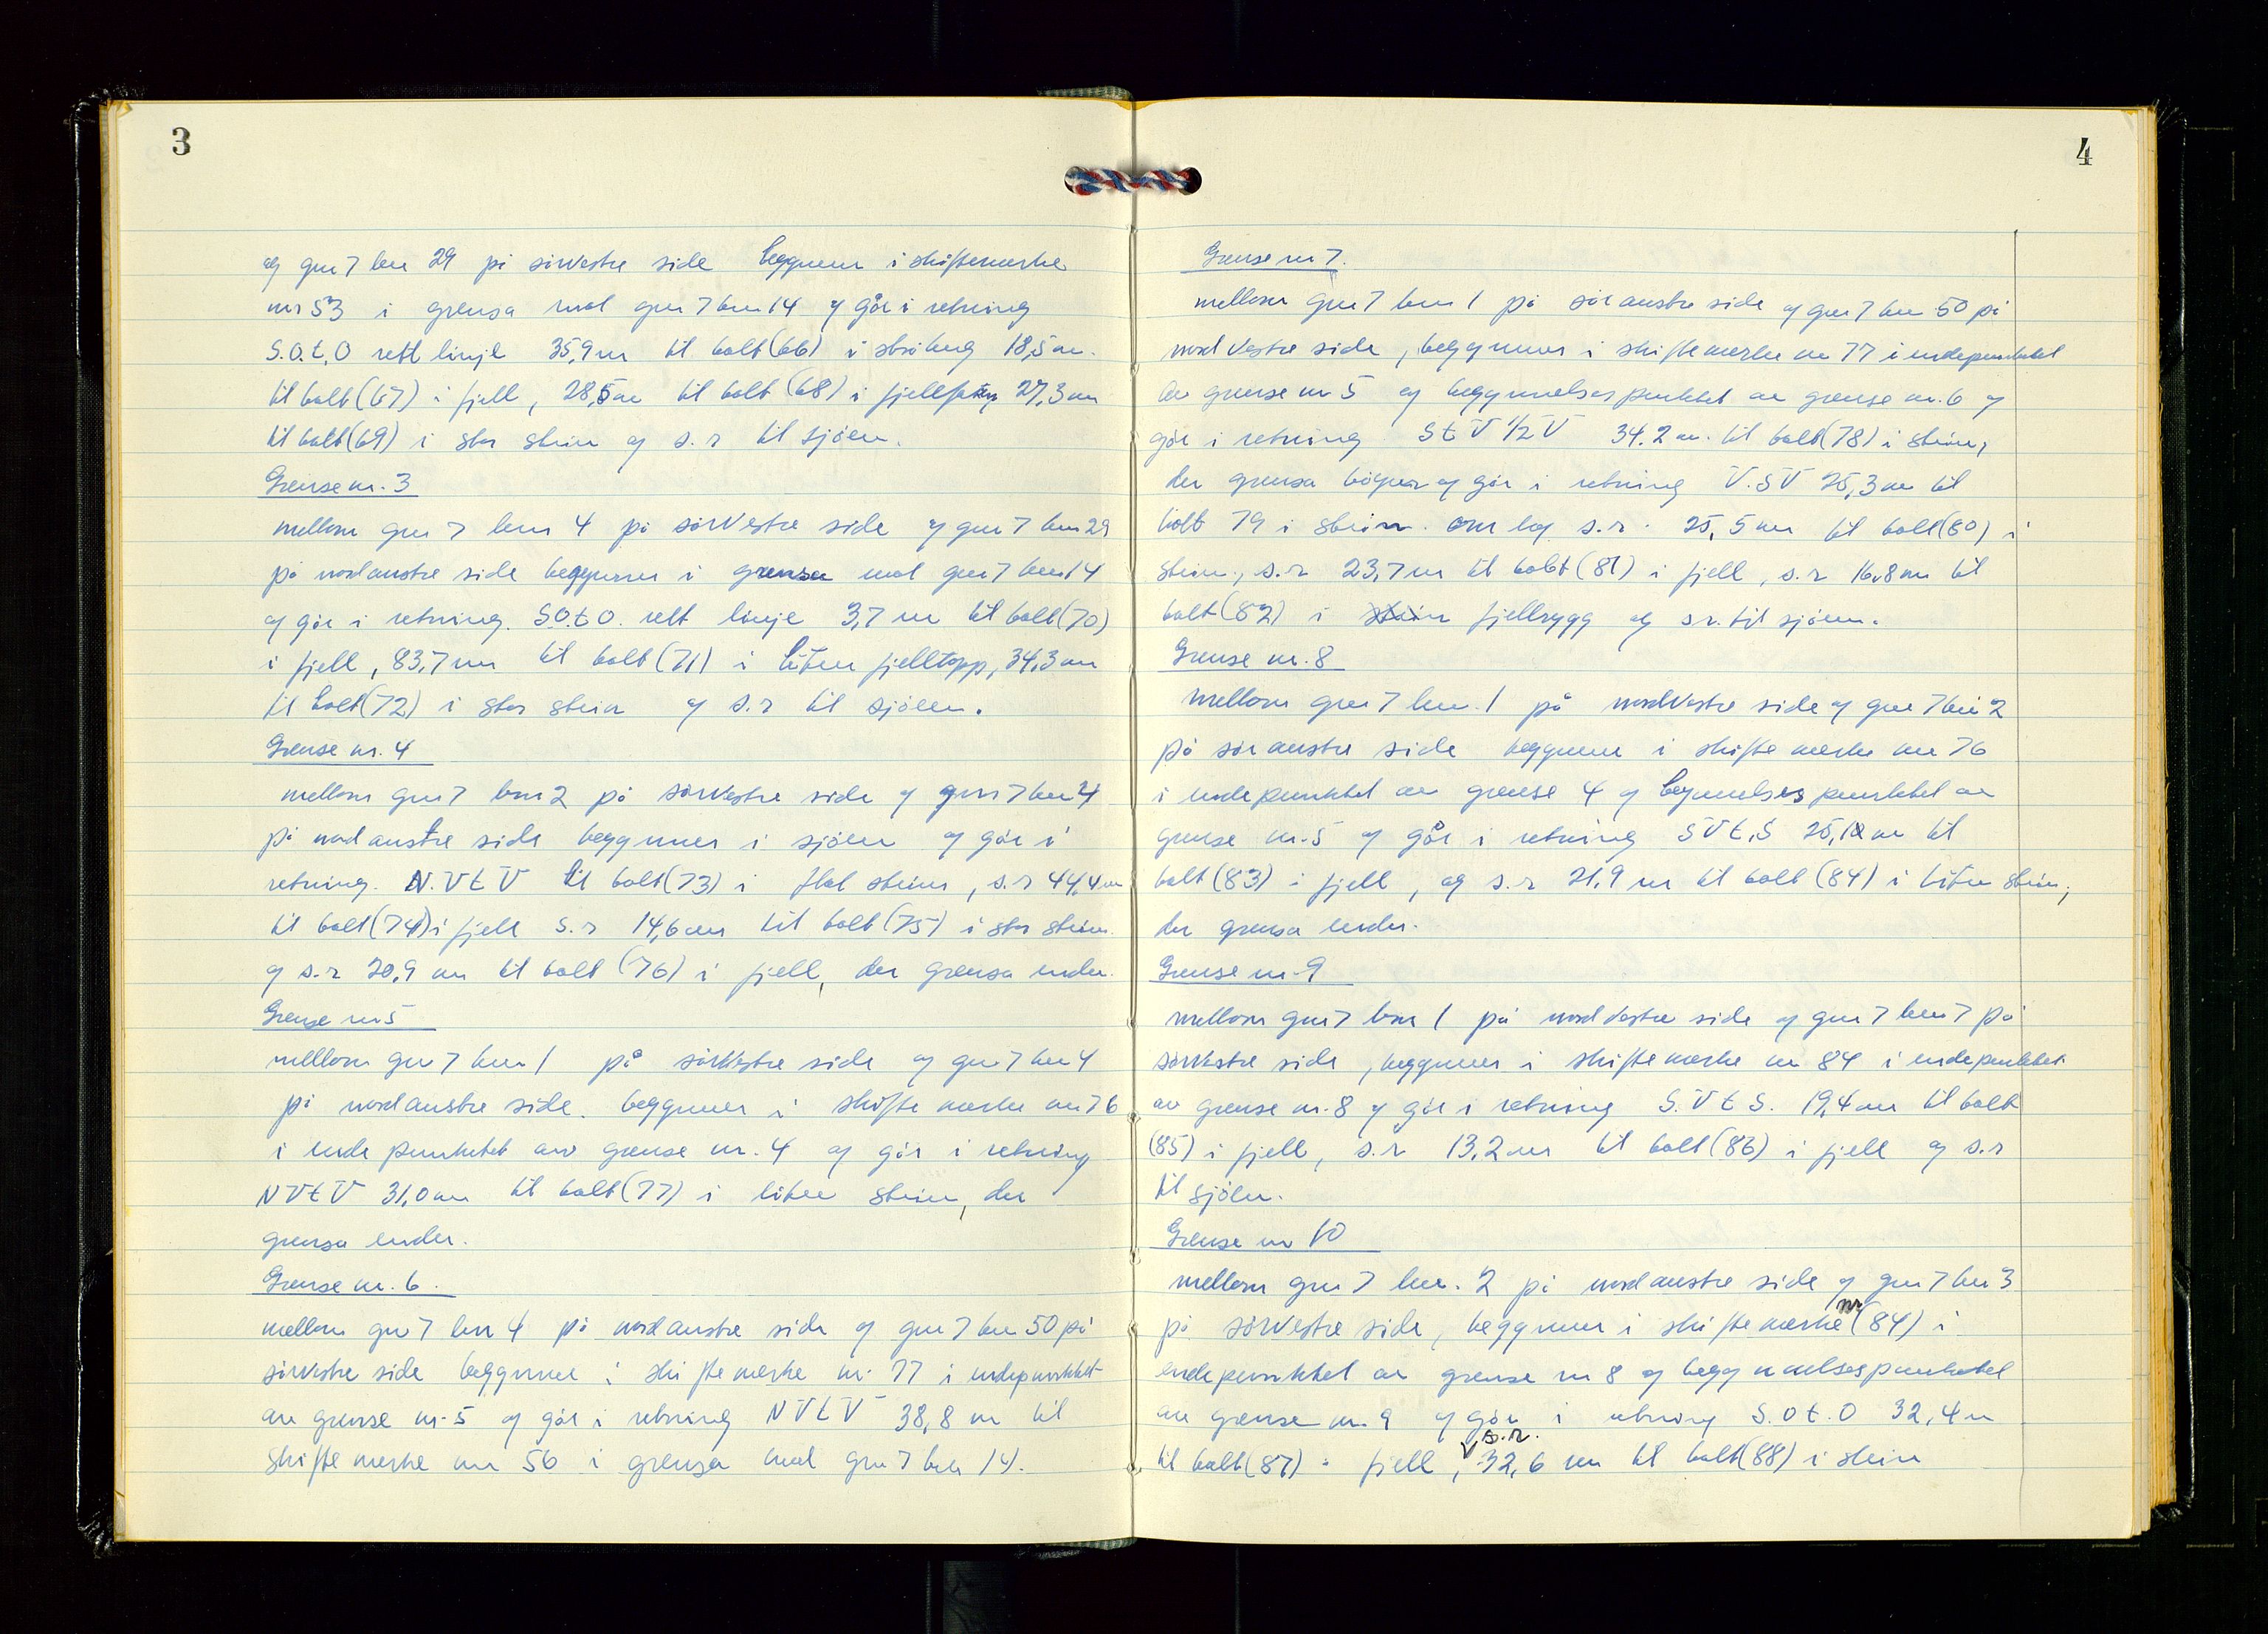 3
og gnr 7 bnr 29 på sørvestre side begynner i skiftemerke
nr 53 i grensa mot gnr 7 bnr 14 og går i retning
S.O.t.O rett linje 35,9 m til bolt (66) i 18,5 m.
til bolt (67) i fjell, 28,5 m til bolt (68) i 27,3 m
til bolt (69) i stor stein og s.r til sjöen.
Grense nr. 3
mellom gnr 7 bnr 4 på sørvestre side og gnr 7 bnr 29
på nordaustre side begynner i grensa mot gnr 7 bnr 14
og går i retning. S.O.t.O. rett linje 3,7 m til bolt (70)
i fjell, 83,7 m til bolt (71) i liten fjelltopp, 34,3 m
til bolt (72) i stor stein og s.r til sjöen.
Grense nr. 4
mellom gnr 7 bnr 2 på sørvestre side og gnr 7 bnr 4
på nordaustre side begynner i sjöen og går i
retning. N.V t V til bolt (73) i flat stein, s.r 44,4 m
til bolt (74) i fjell s.r 14,6 m til bolt (75) i stor stein
og s.r 20,9 m til bolt (76) i fjell, der grensa ender.
Grense nr 5
mellom gnr 7 bnr 1 på sørvestre side og gnr 7 bnr 4
på nordaustre side. begynner i skifte merke nr 76
i ende punktet av grense nr. 4 og går i retning
NV t V 31,0 m til bolt (77) i liten stein, der
grensa ender.
Grense nr. 6.
mellom gnr 7 bnr 4 på nordaustre side og gnr 7 bnr 50 på
sørvestre side begynner i skifte merke nr. 77 i endepunktet
av grense nr. 5 og går i retning NV t V 38,8 m til
skifte merke nr 56 i grensa mot gnr 7 bnr 14.
4
Grense nr 7.
mellom gnr 7 bnr 1 på sör austre side og gnr 7 bnr 50 på
nord vestre side, begynner i skifte merke nr 77 i endepunktet
av grense nr 5 og begynnelses punktet av grense nr. 6 og
går i retning S t V 1/2 V 34.2 m. til bolt (78) i stein,
der grensa bögner og går i retning V.SV 25,3 m til
bolt 79 i stein. om lag s.r. 25,5 m til bolt (80) i
stein, s.r 23,7 m til bolt (81) i fjell, s.r 16,8 m til
bolt (82) i stein fjellrygg og s.r. til sjöen.
Grense nr. 8
mellom gnr 7 bnr. 1 på nordvestre side og gnr 7 bnr 2
på sör austre side begynner i skifte merke nr 76
i ende punktet av grense 4 og begynnelses punktet av
grense nr. 5 og går i retning SV t.S 25,1 m til
bolt (83) i fjell, og s.r 21.9 m til bolt (84) i liten stein,
der grensa ender.
Grense nr. 9
mellom gnr 7 bnr 1 på nord vestre side og gnr 7 bnr 7 på
sørvestre side, begynner i skifte merke nr 84 i endepunktet
av grense nr. 8 og går i retning S.V t S. 19,4 m til bolt
(85) i fjell, s.r 13,2 m til bolt (86) i fjell og s.r
til sjöen.
Grense nr 10
mellom gnr 7 bnr. 2 på nordaustre side og gnr 7 bnr 3
på sørvestre side, begynner i skifte merke nr (84) i
endepunktet av grense nr 8 og begynnelsespunktet
av grense nr. 9 og går i retning S.O t.O 32,4 m
til bolt (87) i fjell, s.r. 32,6 m til bolt (88) i stein